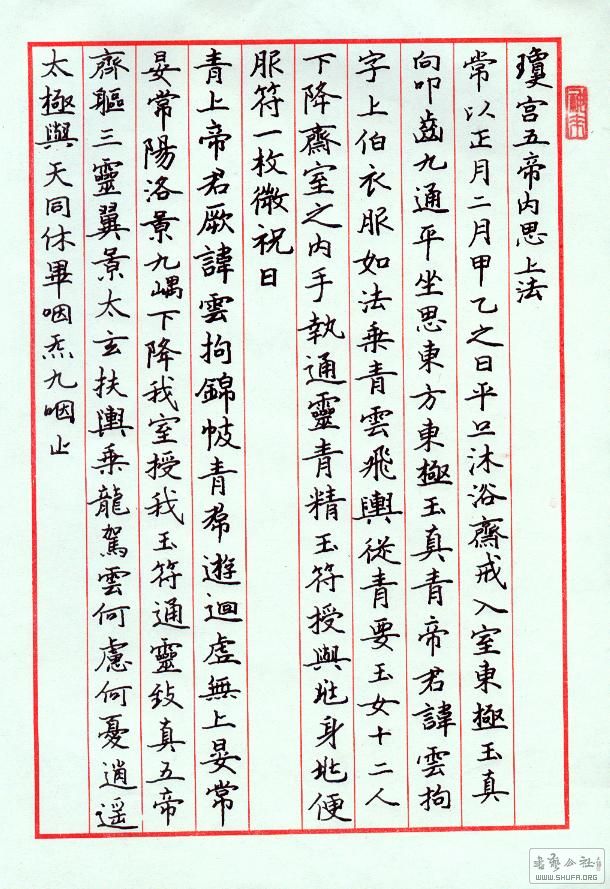 瓊宮五帝内思上法
常以正月二月甲乙之日平旦沐浴齋戒入室東極玉真
向叩齒九通平坐思東方東極玉真青帝君諱雲拘
字上伯衣服如法乗青雲飛輿從青要玉女十二人
下降齋室之内手執通靈青精玉符授與兆身兆便
服符一枚微祝曰
青上帝君厥諱雲拘錦帔青帬遊迴虚無上晏常
晏常陽洛景九嵎下降我室授我玉符通靈致真五帝
齊軀三靈翼景太玄扶輿乗龍駕雲何慮何憂逍遥
太極與天同休畢咽炁九咽止
WWW.SHUFA.ORG